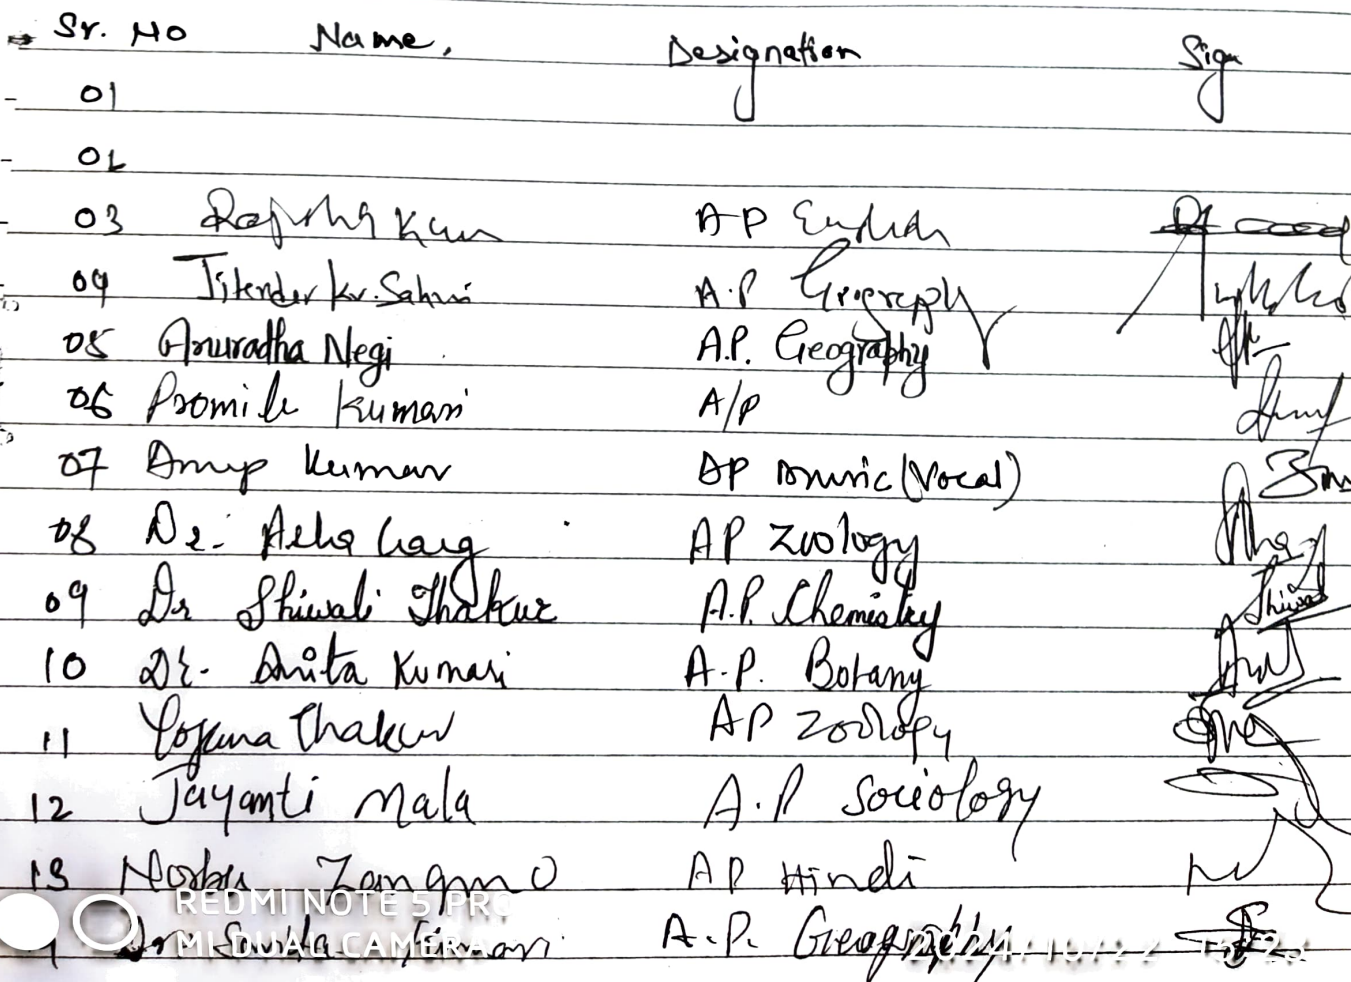 Sr. No Name. Designation Sign
01
02
03 Kau AP English
04 Jitender Kr. Sahni A.P Geography
05 Anuradha Negi A.P. Geography
06 Promila Kumari A/P
07 Anup Kumar AP Music (Vocal)
08 Dr. Asha Garg AP Zoology
09 Dr Shiwali Thakur A.P. Chemistry
10 Dr. Anita Kumari A.P. Botany
11 Yojana Thakur AP Zoology
12 Jayanti Mala A.P Sociology
13 Norbu Zangmo AP Hindi
Dr. Kumari A.P. Geography
REDMI NOTE 5 PRO
MI DUAL CAMERA
2024/10/22 15:23